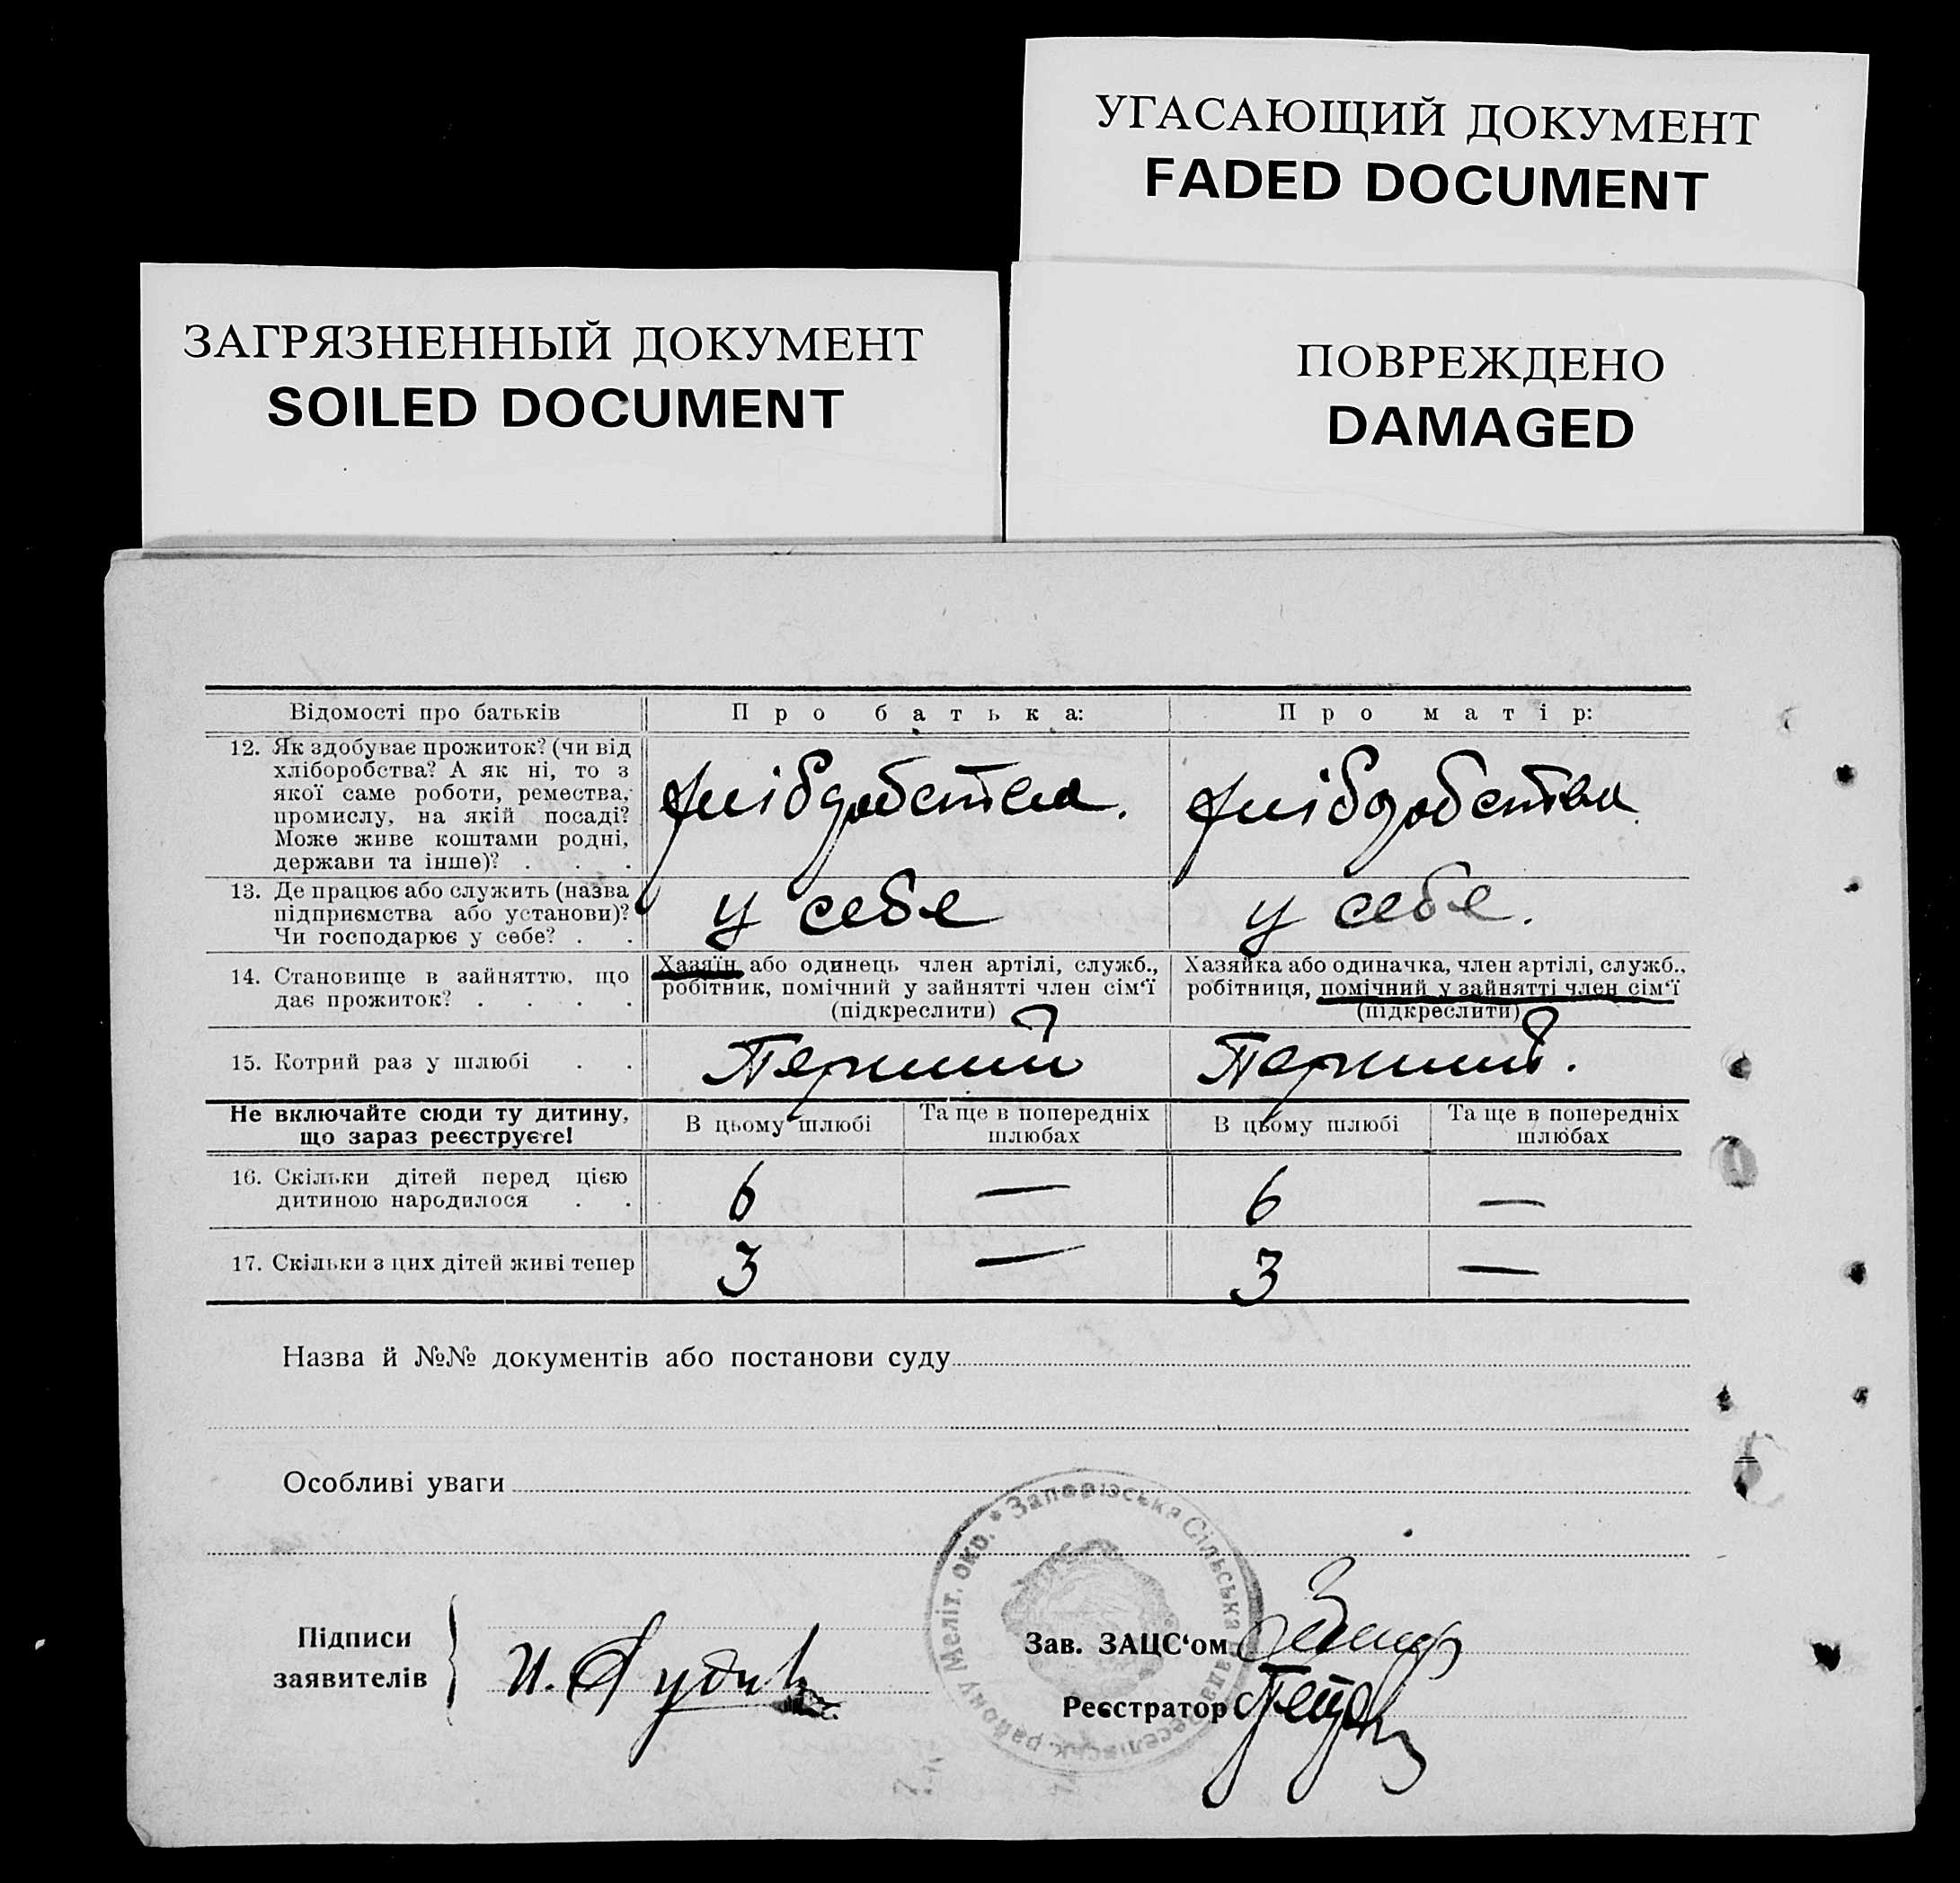 УГАСАЮЩИЙ ДОКУМЕНТ
FADED DOCUMENT
ЗАГРЯЗНЕННЫЙ ДОКУМЕНТ
SOILED DOCUMENT
ПОВРЕЖДЕНО
DAMAGED
Відомості про батьків
Про батька:
Про матір:
12. Як здобуває прожиток? (чи від
хліборобства? А як ні, то з
якої саме роботи, ремества,
промислу, на якій посаді?
Може живе коштами родні,
держави та інше)? . . .
13. Де працює або служить (назва
підприємства або установи)?
Чи господарює у себе? . .
у себе
у себе.
14. Становище в зайняттю, що
дає прожиток? . . . .
Хазяїн або одинець член артілі, служб.,
робітник, помічний у зайнятті член сім‘ї
(підкреслити)
Хазяйка або одиначка, член артілі, служб.,
робітниця, помічний у зайнятті член сім‘ї
(підкреслити)
15. Котрий раз у шлюбі . .
Перший
Перший.
Не включайте сюди ту дитину,
що зараз реєструєте!
В цьому шлюбі
Та ще в попередніх
шлюбах
В цьому шлюбі
Та ще в попередніх
шлюбах
16. Скільки дітей перед цією
дитиною народилося . .
6 — 6 —
17. Скільки з цих дітей живі тепер
3 — 3 —
Назва й №№ документів або постанови суду
Особливі уваги
Запорізська Сільська
району Меліт. окр. *
Підписи
заявителів
Зав. ЗАЦС‘ом
Реєстратор